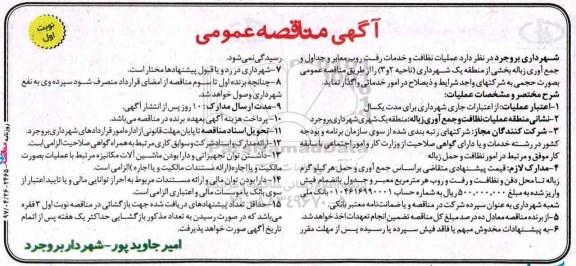 آگهی مناقصه عمومی
نوبت
اول
شهرداری بروجرد در نظر دارد عملیات نظافت و خدمات رفت روب معابر و جداول و
جمع آوری زباله بخشی از منطقه یک شهرداری (ناحیه ۲و۳) را از طریق مناقصه عمومی
بصورت حجمی به شرکتهای واجد شرایط و ذیصلاح در امور خدماتی واگذار نماید.
شرح مختصر و مشخصات عملیات:
۱- اعتبار عملیات: از اعتبارات جاری شهرداری برای مدت یکسال
۲- نشانی منطقه عملیات نظافت و جمع آوری زباله: منطقه یک شهری شهرداری بروجرد
۳- شرکت کنندگان مجاز: شرکتهای رتبه بندی شده از سوی سازمان برنامه و بودجه
کشور در رشته خدمات و یا دارای گواهی صلاحیت از وزارت کار و امور اجتماعی با سابقه
کار موفق و مرتبط در امور نظافت و حمل زباله
۴- مدارک لازم: قیمت پیشنهادی متقاضی براساس جمع آوری و حمل هر کیلو گرم
زباله تا محل دفن و نظافت و رفت و روب هر مترمربع معبر و جدول بانضمام فیش
واریز شده به مبلغ ۵۰۰,۰۰۰,۰۰۰ ریال به شماره حساب ۰۱۰۰۴۶۱۶۹۹۰۰۱ بانک ملی
شعبه شهرداری به عنوان سپرده شرکت در مناقصه و یا ضمانت نامه معتبر بانکی.
۵- از برنده مناقصه معادل ده درصد مبلغ کل مناقصه تضمین انجام تعهدات اخذ خواهد شد.
۶- به پیشنهادات مخدوش مبهم یا فاقد فیش سپرده یا رسیده پس از مهلت مقرر
رسیدگی نمی شود.
۷- شهرداری در رد و یا قبول پیشنهادها مختار است.
۸- چنانچه برنده اول تا سوم مناقصه از امضای قرارداد منصرف شود سپرده وی به نفع
شهرداری وصول خواهد شد.
۹- مدت ارسال مدارک: ۱۰ روز پس از انتشار آگهی.
۱۰- پرداخت هزینه آگهی بعهده برنده در مناقصه می باشد.
۱۱- تحویل اسناد مناقصه تا پایان مهلت قانونی از اداره امور قراردادهای شهرداری بروجرد.
۱۲- ارائه مدارک و اسناد شرکت و سوابق کاری مرتبط به همراه گواهی صلاحیت الزامی است.
۱۳- داشتن توان تجهیزاتی و دارا بودن ماشین آلات مکانیزه مرتبط با عملیات بصورت
مالکیت و یا اجاره (ارائه مستندات مالکیت و یا اجاره) الزامی است.
۱۴- دارا بودن توان مالی و ارائه مستندات مربوط به احراز توانایی مالی و یا تایید اعتبار از
سوی بانک و یا موسسات مالی و اعتباری الزامی است.
۱۵- حداقل تعداد پیشنهادهای دریافت شده جهت بازگشائی در مناقصه نوبت اول ۳ فقره
می باشد که در صورت رسیدن به تعداد مذکور بازگشایی حداکثر یک هفته پس از اتمام
تاریخ آگهی صورت خواهد پذیرفت.
امیر جاوید پور - شهردار بروجرد